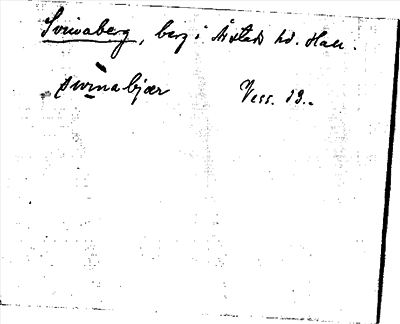 Svinaberg, berg i Årstads hd. Hall.
svinabjær Vess. 19..